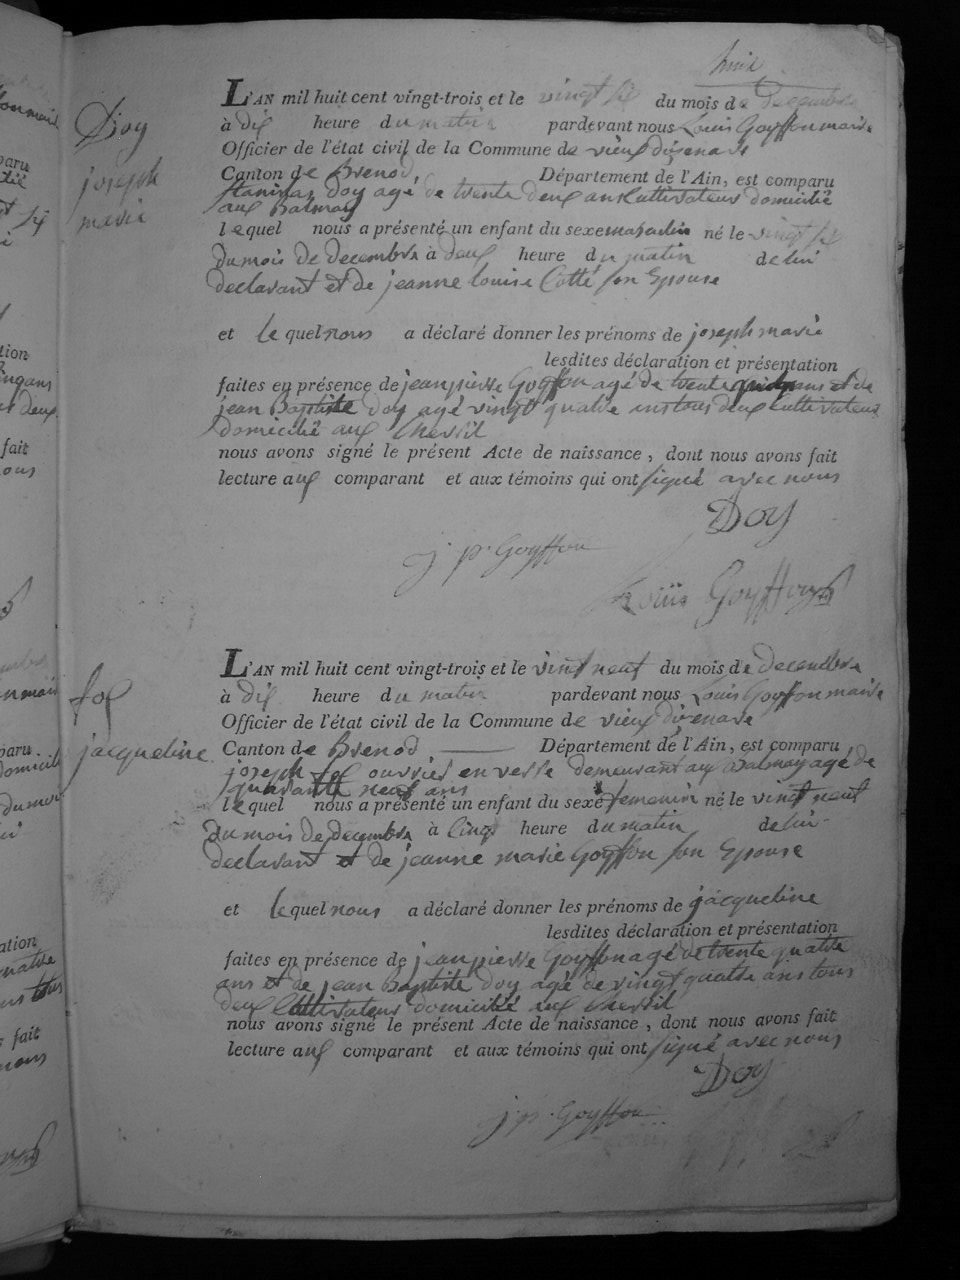 huit
Doy
joseph
marie
L'AN mil huit cent vingt-trois et le vingt six du mois de decembre
à dix heure du matin pardevant nous Louis Goyffon maire
Officier de l'état civil de la Commune de vieux dizenave
Canton de Brenod Département de l'Ain, est comparu
staninas doy agé de trente deux ans Cultivateur domicilié
aux Balmay
lequel nous a présenté un enfant du sexe masculin né le vingt six
du mois de decembre à deux heure du matin de lui
declarant et de jeanne louise Cotté son Epouse
et le quel nous a déclaré donner les prénoms de joseph marie
lesdites déclaration et présentation
faites en présence de jean pierre Goyffon agé de trente ans et de
jean Baptiste doy agé vingt quatre ans tous deux Cultivateurs
domicilié aux
nous avons signé le présent Acte de naissance, dont nous avons fait
lecture aux comparant et aux témoins qui ont signé avec nous
Doy
j. p. Goyffon
Louis Goyffon
fox
jacqueline
L'AN mil huit cent vingt-trois et le vint neuf du mois de decembre
à dix heure du matin pardevant nous Louis Goyffon maire
Officier de l'état civil de la Commune de vieux dizenave
Canton de Brenod Département de l'Ain, est comparu
joseph fox ouvrier en verre demeurant aux Balmay agé de
quarante neuf ans
lequel nous a présenté un enfant du sexe femenin né le vingt neuf
du mois de decembre à Cinq heure du matin de lui
declarant et de jeanne marie Goyffon son Epouse
et lequel nous a déclaré donner les prénoms de jacqueline
lesdites déclaration et présentation
faites en présence de jean pierre Goyffon agé de trente quatre
ans et de jean Baptiste doy agé de vingt quatre ans tous
deux Cultivateurs domicilié aux
nous avons signé le présent Acte de naissance, dont nous avons fait
lecture aux comparant et aux témoins qui ont signé avec nous
Doy
j. p. Goyffon